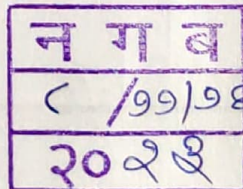 न ग ब
८ /११|१६
२० २३